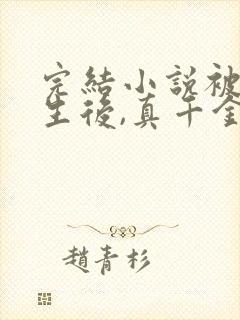 完結小說被
生後,真千金
趙青杉